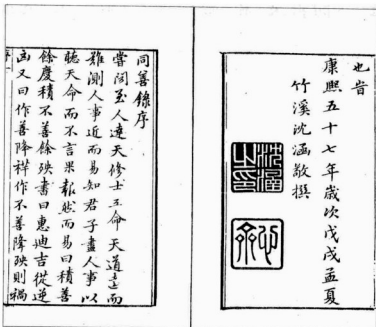 也旨
康熙五十七年歲次戊戌孟夏
竹溪沈涵敬撰
沈涵之印
同善錄序
嘗聞至人達天修士立命天道遠而
難測人事近而易知君子盡人事以
聽天命而不言果報然而易曰積善
餘慶積不善餘殃書曰惠迪吉從逆
凶又曰作善降祥作不善降殃則禍